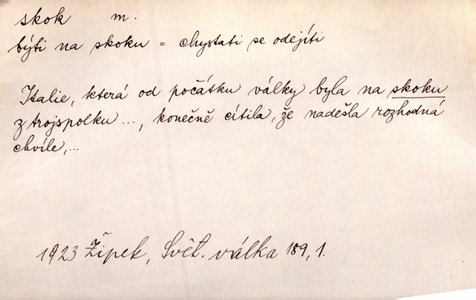 skok m.
býti na skoku = chystati se odejíti
Italie, která od počátku války byla na skoku
z trojspolku ..., konečně cítila, že nadešla rozhodná
chvíle,...
1923 Žipek, Svět. válka 189, 1.